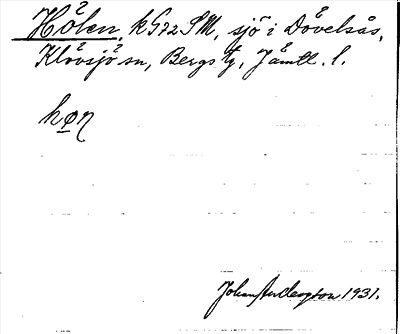 Hålen, k G72 SM, sjö i Dövelsås,
Klövsjö sn, Bergs tg, Jämtl. l.
høn
Johan Andersson 1931.